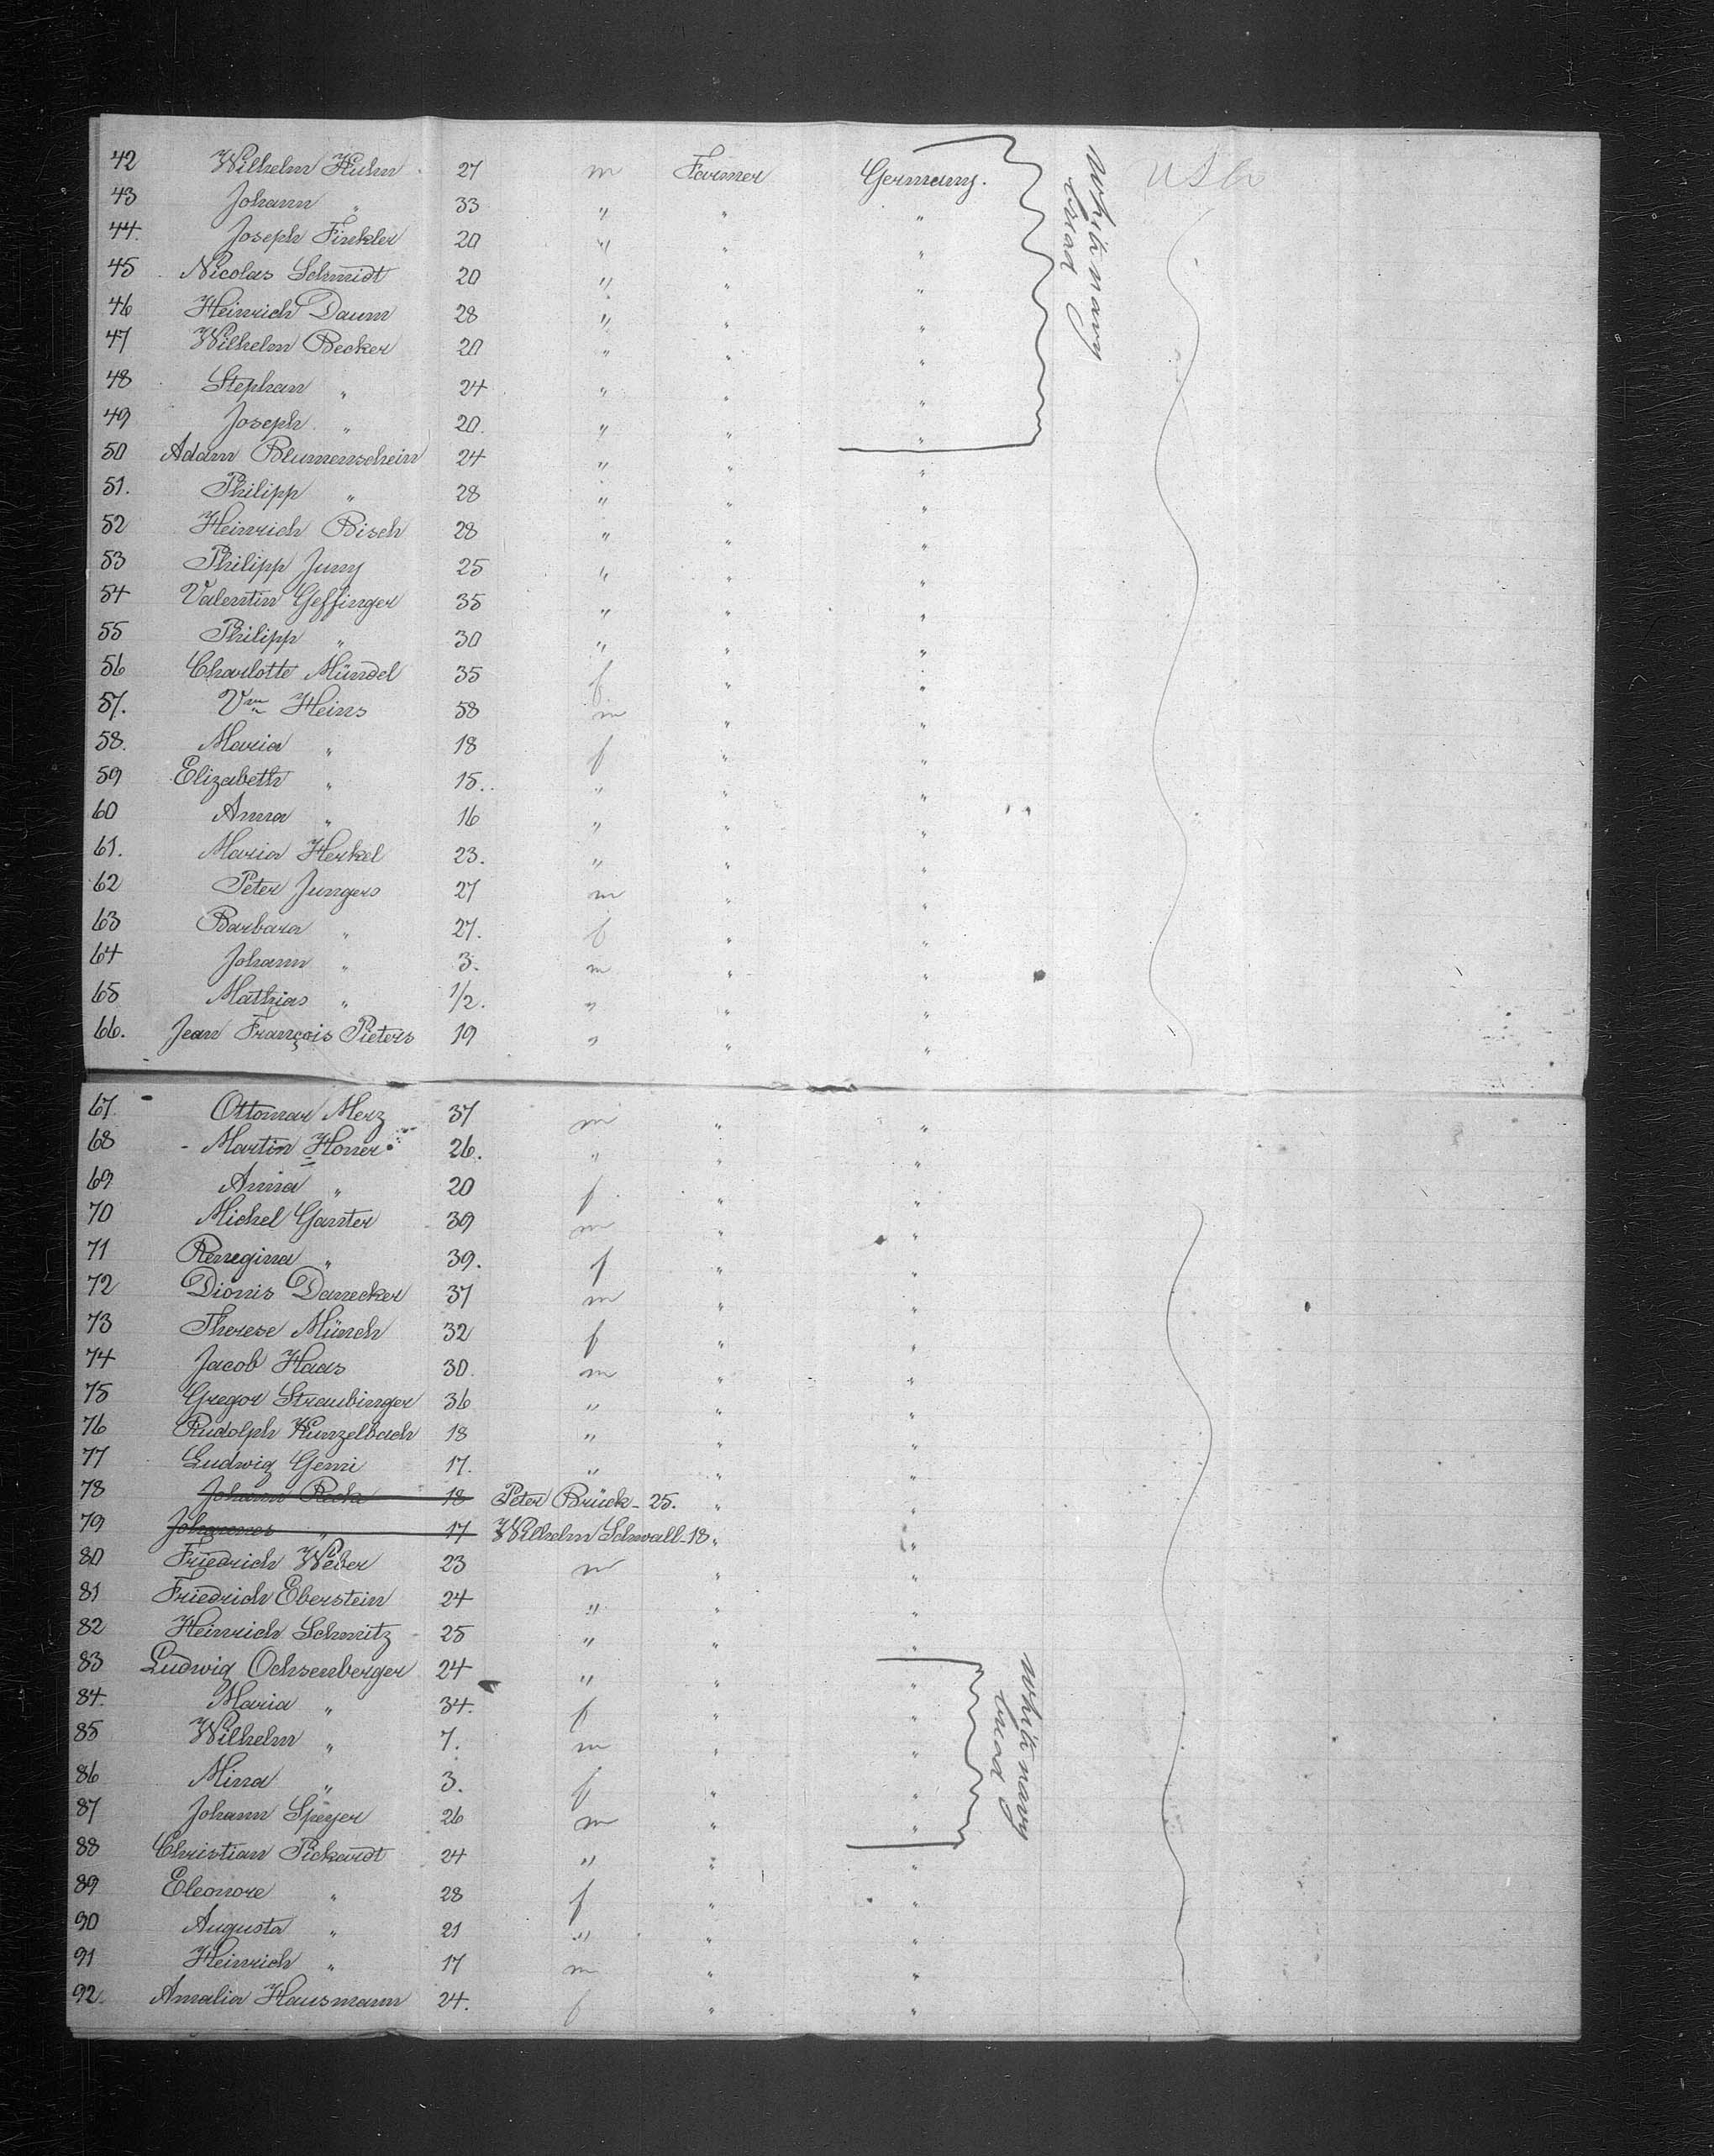 42 Wilhelm Kuhn 27 m Farmer Germany. USA
43 Johann " 33 " " "
44. Joseph Finkler 20 " " "
45 Nicolas Schmidt 20 " " "
46 Heinrich Daum 28 " " "
47 Wilhelm Becker 20 " " "
48 Stephan " 24 " " "
49 Joseph " 20. " " "
50 Adam Blumenschein 24 " " "
51. Philipp " 28 " " "
52 Heinrich Bisch 28 " " "
53 Philipp Jung 25 " " "
54 Valentin Geffinger 35 " " "
55 Philipp " 30 " " "
56 Charlotte Mündel 35 f " "
57. Vm Heins 58 m " "
58. Maria " 18 f " "
59 Elizabeth " 15. " " "
60 Anna " 16 " " "
61. Maria Herkel 23. " " "
62 Peter Jungers 27 m " "
63 Barbara " 27. f " "
64 Johann " 3. m " "
65 Mathias " 1/2. " " "
66. Jean François Pieters 19 " " "
67. Ottomar Merz 37 m " "
68 Martin Honer 26. " " "
69 Anna " 20 f " "
70 Michel Ganter 39 m " "
71 Renegina " 39. f " "
72 Dionis Danecker 37 m " "
73 Therese Münch 32 f " "
74 Jacob Haas 30. m " "
75 Gregor Straubinger 36 " " "
76 Rudolph Kunzelbach 18 " " "
77 Ludwig Gemi 17. " " "
78 Johann Reck 18 Peter Brück - 25. " "
79 Johannes " 17 Wilhelm Schwall - 18 " "
80 Friedrich Weber 23 m " "
81 Friedrich Eberstein 24 " " "
82 Heinrich Schmitz 25 " " "
83 Ludwig Ochsenberger 24 " " "
84. Maria " 34. f " "
85 Wilhelm " 7. m " "
86 Mina " 3. f " "
87 Johann Speyer 26 m " "
88 Christian Pickardt 24 " " "
89 Eleonore " 28 f " "
90 Augusta " 21 " " "
91 Heinrich " 17 m " "
92. Amalia Hausmann 24. f " "